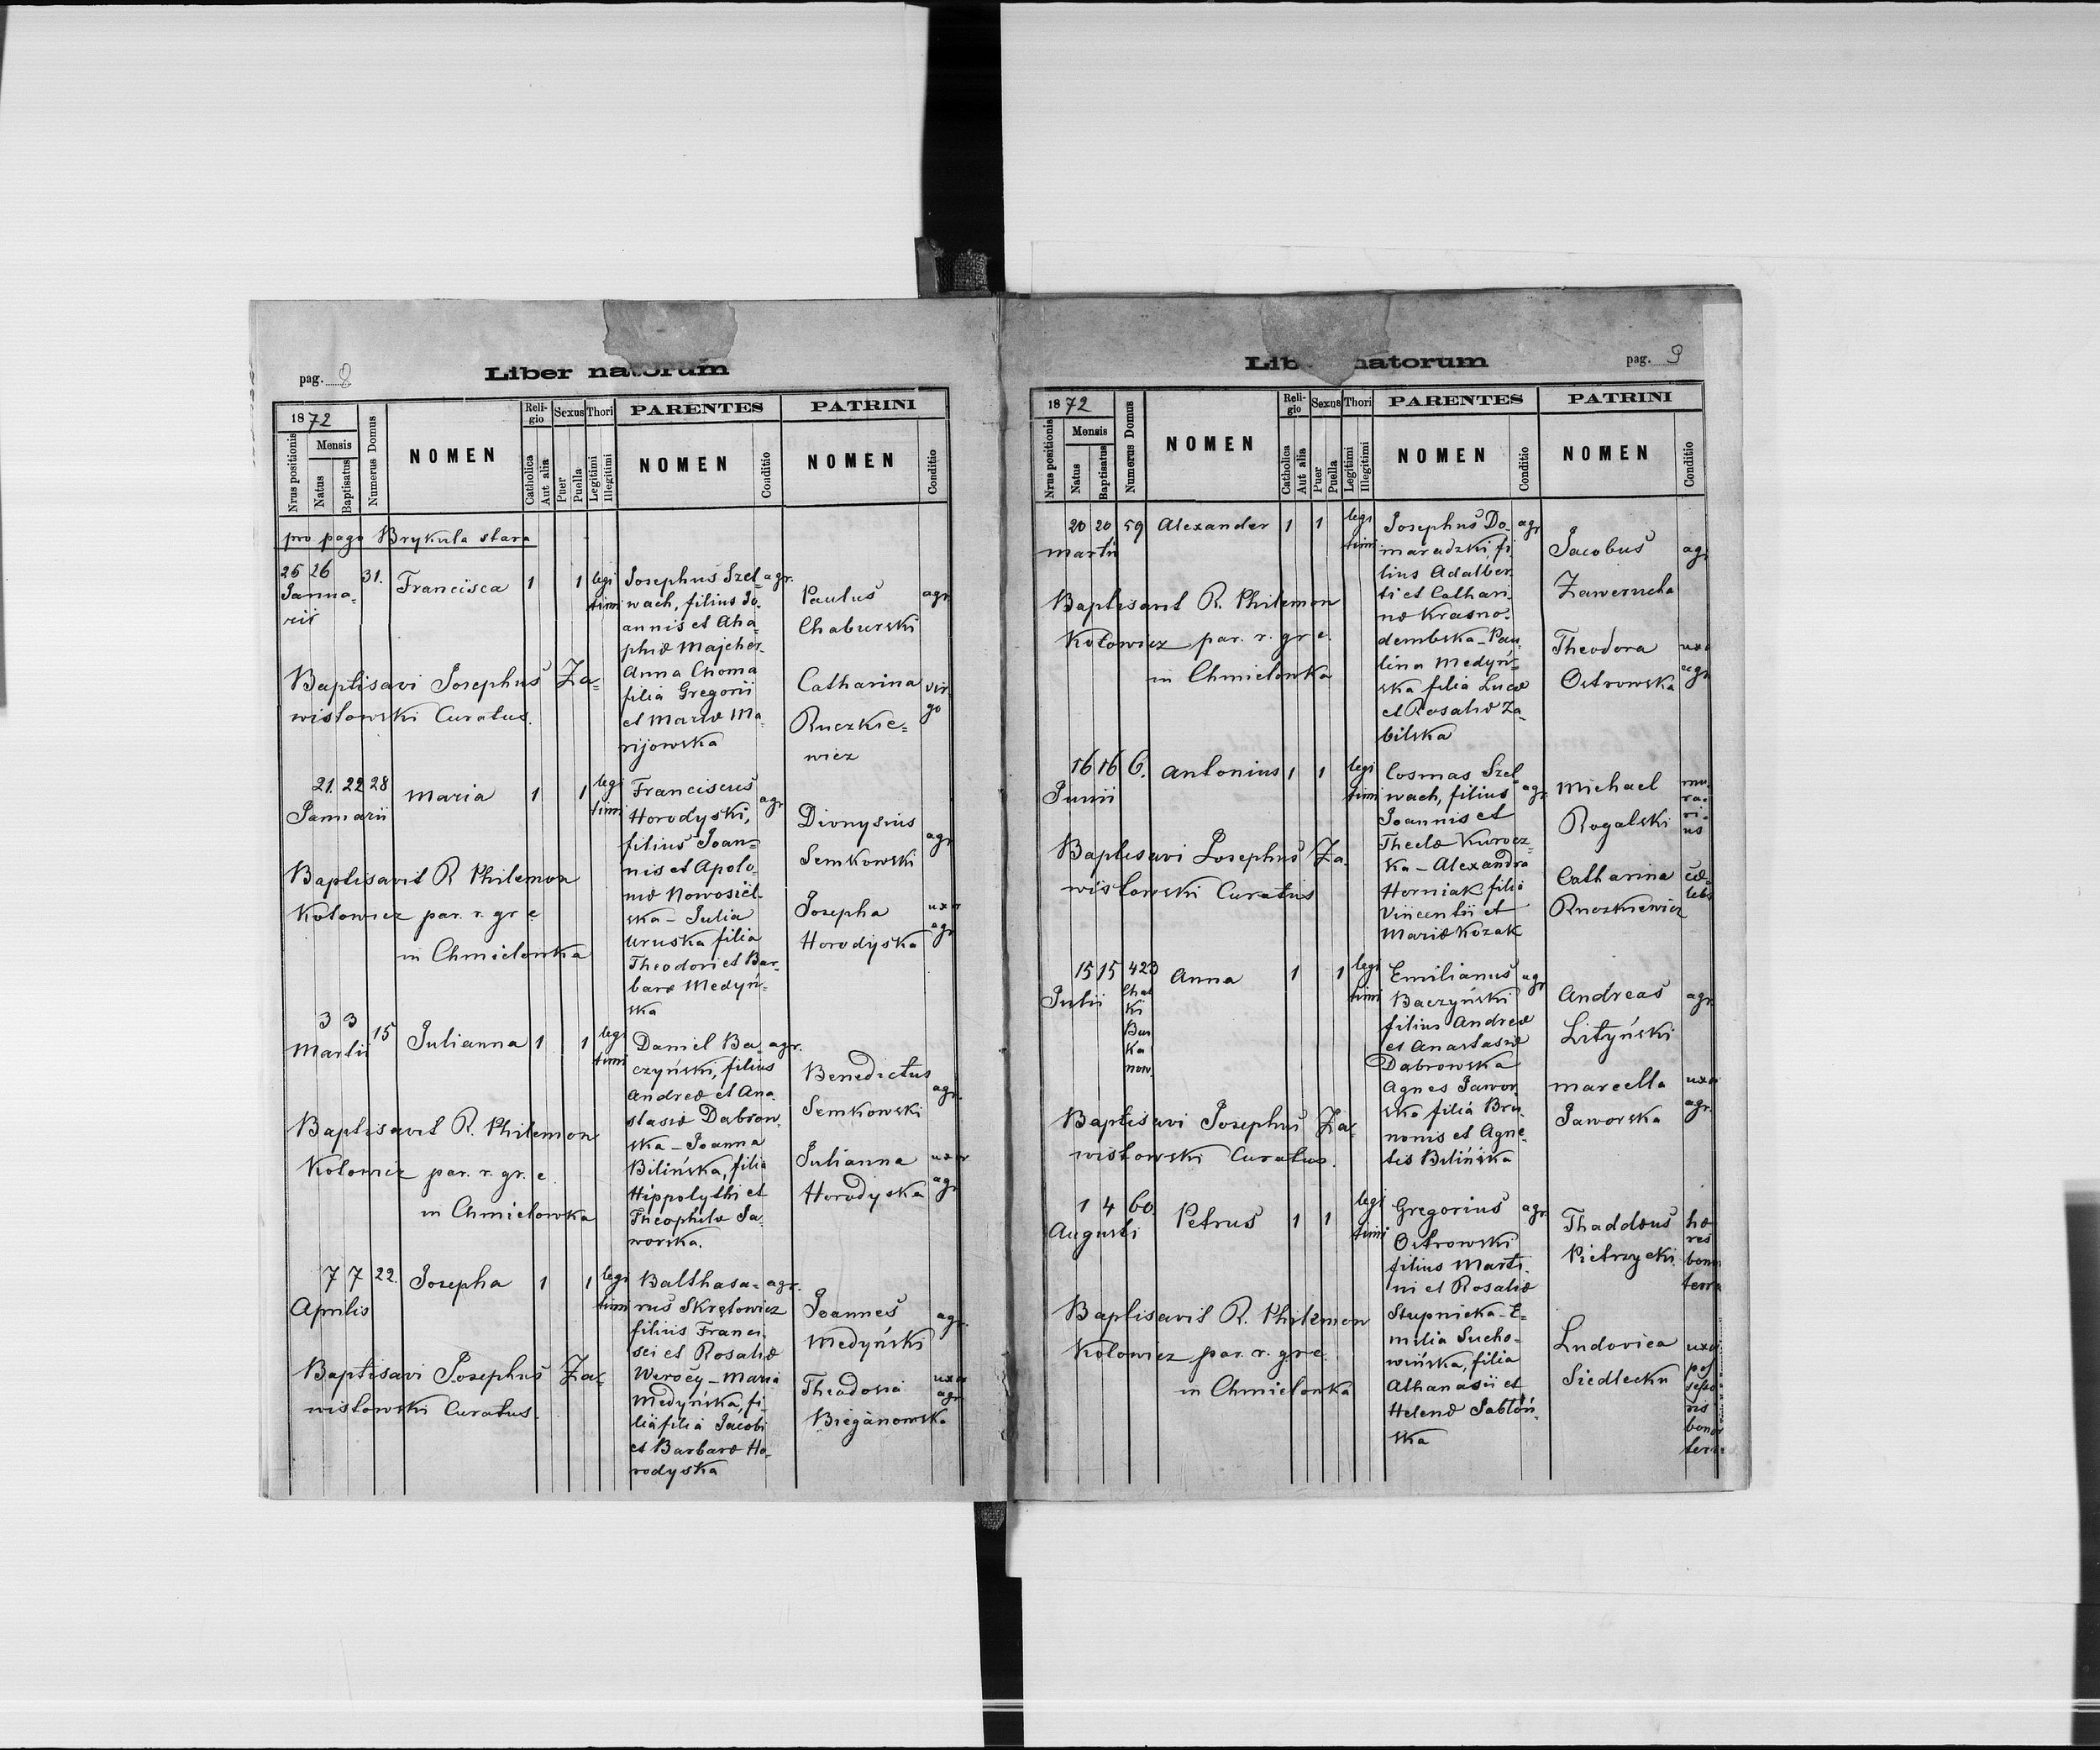 pag. 8
Liber natorum
1872
Nrus positionis
Mensis
Natus
Baptisatus
Numerus Domus
NOMEN
Reli-
gio
Catholica
Aut alia
Sexus
Puer
Puella
Thori
Legitimi
Illegitimi
PARENTES
NOMEN
Conditio
PATRINI
NOMEN
Conditio
pro pago Brykula stara
25 26
Janua=
rii
31.
Francisca
1
1
legi
timi
Josephus Szel=
wach, filius Jo.
annis et Aha=
phiæ Majcher
Anna Choma
filia Gregorii
et Mariæ Ma
rijowska
agr.
Paulus
Chaburski
agr.
Catharina
Ruczkie=
wicz
vir
go
Baptisavi Josephus Za=
wisłowski Curatus.
21. 22 28
Januarii
Maria
1
1
legi
timi
Franciscus
Horodyski,
filius Joan=
nis et Apolo
niæ Nowosiel.
ska - Julia
Uruska filia
Theodori et Bar
baræ Medyń=
ska
agr
Dionysius
Semkowski
agr
Josepha
Horodyska
uxor
agr
Baptisavit R. Philemon
Kołowicz par. r. gr c
in Chmielowka
3 3
Martii
15
Julianna
1
1
legi
timi
Daniel Ba
czyński, filius
Andreæ et Ana
stasiæ Dabrow
ska - Joanna
Bilińska, filia
Hippolythi et
Theophilæ Ja
worska.
agr.
Benedictus
Semkowski
agr.
Julianna
Horodyska
uxor
agr
Baptisavit R. Philemon
Kołowicz par. r. gr. c.
in Chmielowka
7 7 22.
Aprilis
Josepha
1
1
legi
timi
Balthasa=
rus Skrętowicz
filius Franci.
sci et Rosaliæ
Werocy - Maria
Medyńska, fi-
lia filia Jacobi
et Barbaræ Ho
rodyska
agr.
Joannes
Medyński
agr.
Theodosia
Bieganowska
uxor
agr
Baptisavi Josephus Za=
wisłowski Curatus.
pag. 9
Liber natorum
1872
Nrus positionis
Mensis
Natus
Baptisatus
Numerus Domus
NOMEN
Reli-
gio
Catholica
Aut alia
Sexus
Puer
Puella
Thori
Legitimi
Illegitimi
PARENTES
NOMEN
Conditio
PATRINI
NOMEN
Conditio
20 20 59
Martii
Alexander
1
1
legi
timi
Josephus Do.
maradzki, fi
lius Adalber.
ti et Cathari
næ Krasno.
dembska - Pau
lina Medyń=
ska filia Lucæ
et Rosaliæ Za
bilska
agr
Jacobus
Zawerucha
agr
Theodora
Ostrowska
uxor
agr
Baptisavit R. Philemon
Kołowicz par. r. gr c.
in Chmielowka
16 16 6.
Junii
Antonius
1
1
legi
timi
Cosmas Szel
wach, filius
Joannis et
Theclæ Kurocz=
ka - Alexandra
Horniak filia
Vincentii et
Mariæ Kozak
agr.
Michael
Rogalski
mu
ra.
ri.
us
Catharina
Ruczkiewicz
cæ
lebs
Baptisavi Josephus Za.
wisłowski Curatus
15 15 423
Julii
Chat
ki
Bur
ka
now.
Anna
1
1
legi
timi
Emilianus
Baczyński
filius Andreæ
et Anastasiæ
Dabrowska
Agnes Jawor
ska filia Bru
nonis et Agne
tis Bilińska
agr
Andreas
Lityński
agr
Marcella
Jaworska
uxor
agr.
Baptisavi Josephus Za=
wisłowski Curatus.
1 4 60
Augusti
Petrus
1
1
legi
timi
Gregorius
Ostrowski
filius Marti.
ni et Rosaliæ
Stupnicka - E=
milia Sucho-
wińska, filia
Athanasii et
Helenæ Jabłoń.
ska
agr
Thaddæus
Pietrzycki
hæ
res
bonor
terra
Ludovica
Siedlecka
uxor
pos
sesso
ris
bonor
terra
Baptisavit R. Philemon
Kołowicz par. r. gr c
in Chmielowka